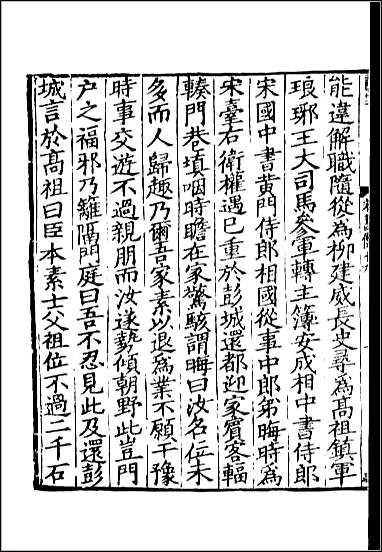 能違解職隨從為柳建威長史尋為髙祖鎮軍
琅邪王大司馬參軍轉主簿安成相中書侍郎
宋國中書黃門侍郎相國從事中郎弟晦時為
宋臺右衛權遇已重於彭城還都迎家賓客輻
輳門巷填咽時瞻在家驚駭謂晦曰汝名位未
多而人歸趣乃爾吾家素以退為業不願干豫
時事交遊不過親朋而汝遂勢傾朝野此豈門
户之福邪乃籬隔門庭曰吾不忍見此及還彭
城言於髙祖曰臣本素士父祖位不過二千石